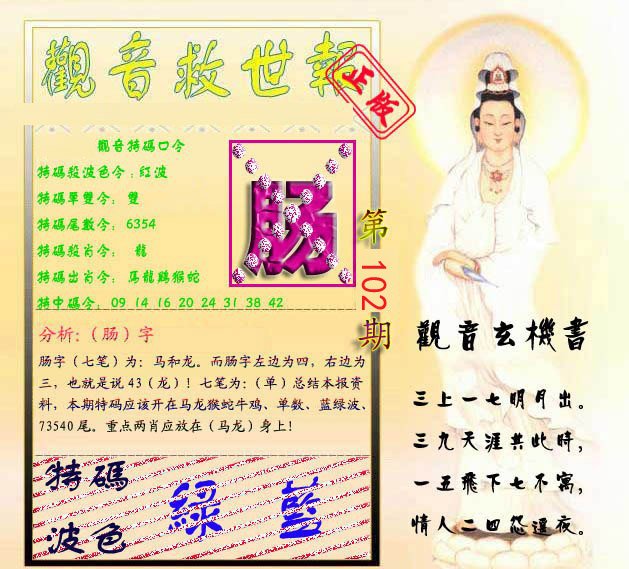 觀音救世報
正版
觀音特碼口令
特碼殺波色令:紅波
特碼單雙令: 雙
特碼尾數令: 6354
特碼殺肖令: 龍
特碼出肖令: 馬龍鷄猴蛇
特中碼令: 09 14 16 20 24 31 38 42
肠
第102期
分析:(肠)字
肠字(七笔)为: 马和龙。而肠字左边为四,右边为
三,也就是说 43(龙)!七笔为:(单)总结本报资
料,本期特码应该开在马龙猴蛇牛鸡、单数、蓝绿波、
73540 尾。重点两肖应放在(马龙)身上!
特碼
波色
綠 藍
觀音玄機書
三上一七明月出。
三九天涯共此時,
一五飛下七不寓,
情人二四怨遥夜。